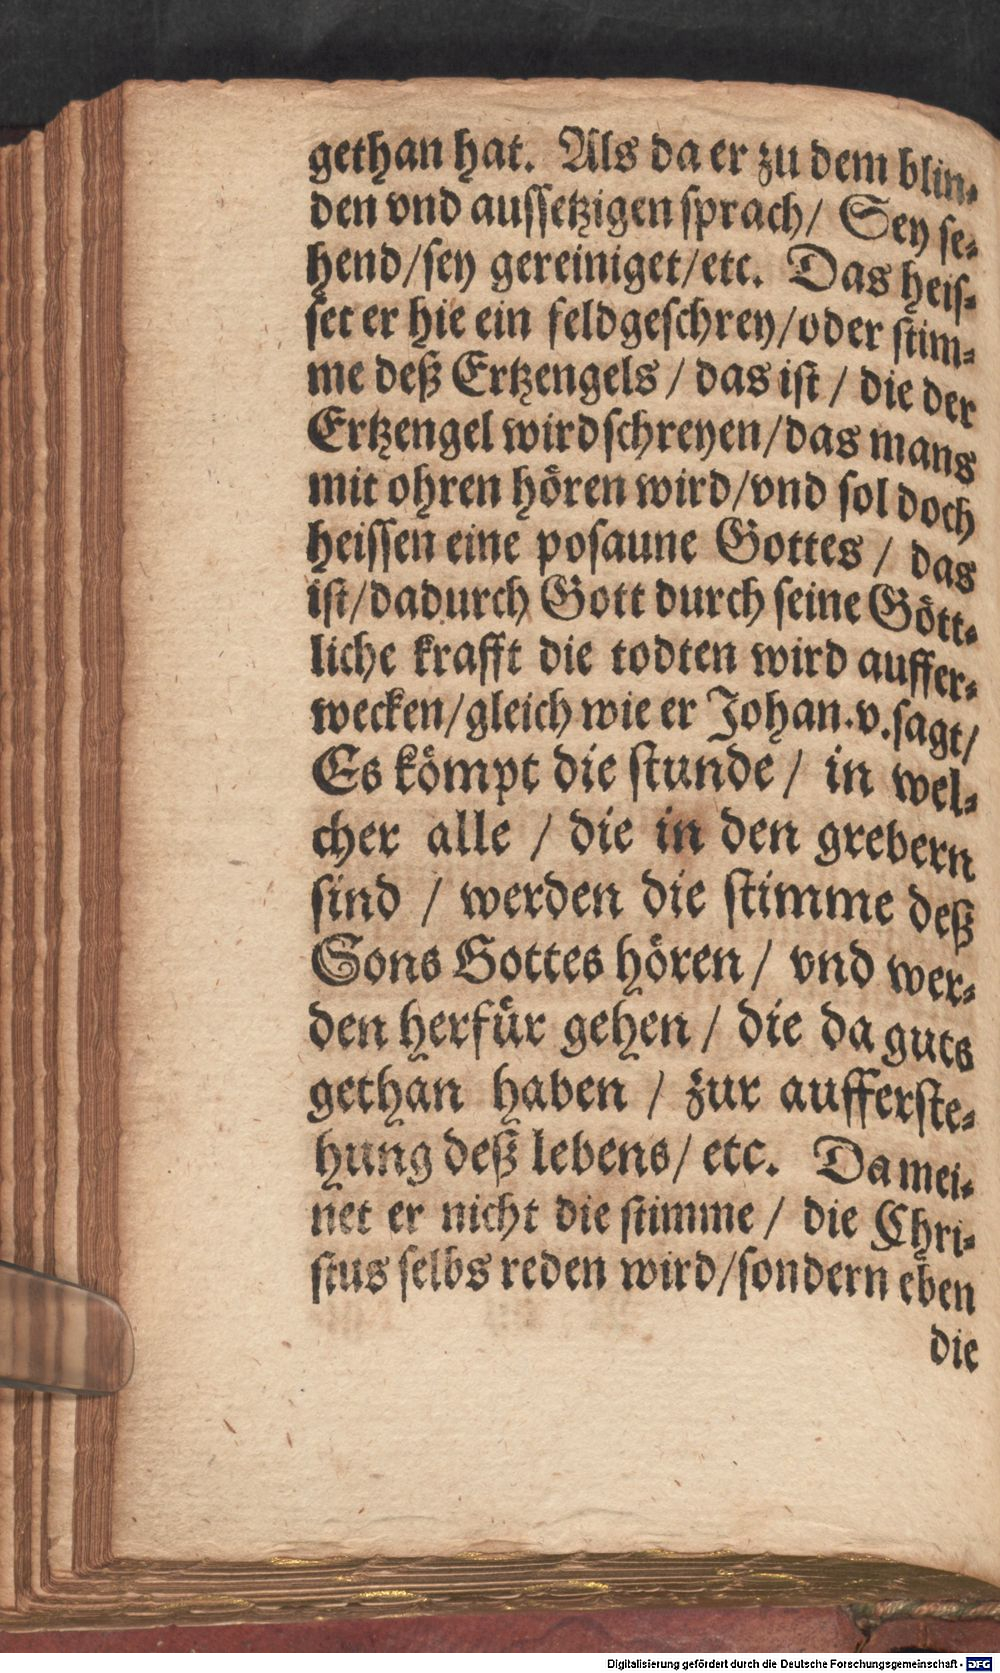 gethan hat. Als da er zu dem blin⸗
den vnd aussetzigen sprach/ Sey se⸗
hend/sey gereiniget/etc. Das heis⸗
set er hie ein feldgeschrey/oder stim⸗
me deß Ertzengels / das ist / die der
Ertzengel wird schreyen/das mans
mit ohren hören wird/vnd sol doch
heissen eine posaune Gottes / das
ist/dadurch Gott durch seine Gött⸗
liche krafft die todten wird auffer⸗
wecken/gleich wie er Johan.v.sagt/
Es kömpt die stunde / in wel⸗
cher alle / die in den grebern
sind / werden die stimme deß
Sons Gottes hören / vnd wer⸗
den herfür gehen / die da guts
gethan haben / zur aufferste⸗
hung deß lebens/ etc. Da mei⸗
net er nicht die stimme / die Chri⸗
stus selbs reden wird/sondern eben
die
Digitalisierung gefördert durch die Deutsche Forschungsgemeinschaft - DFG